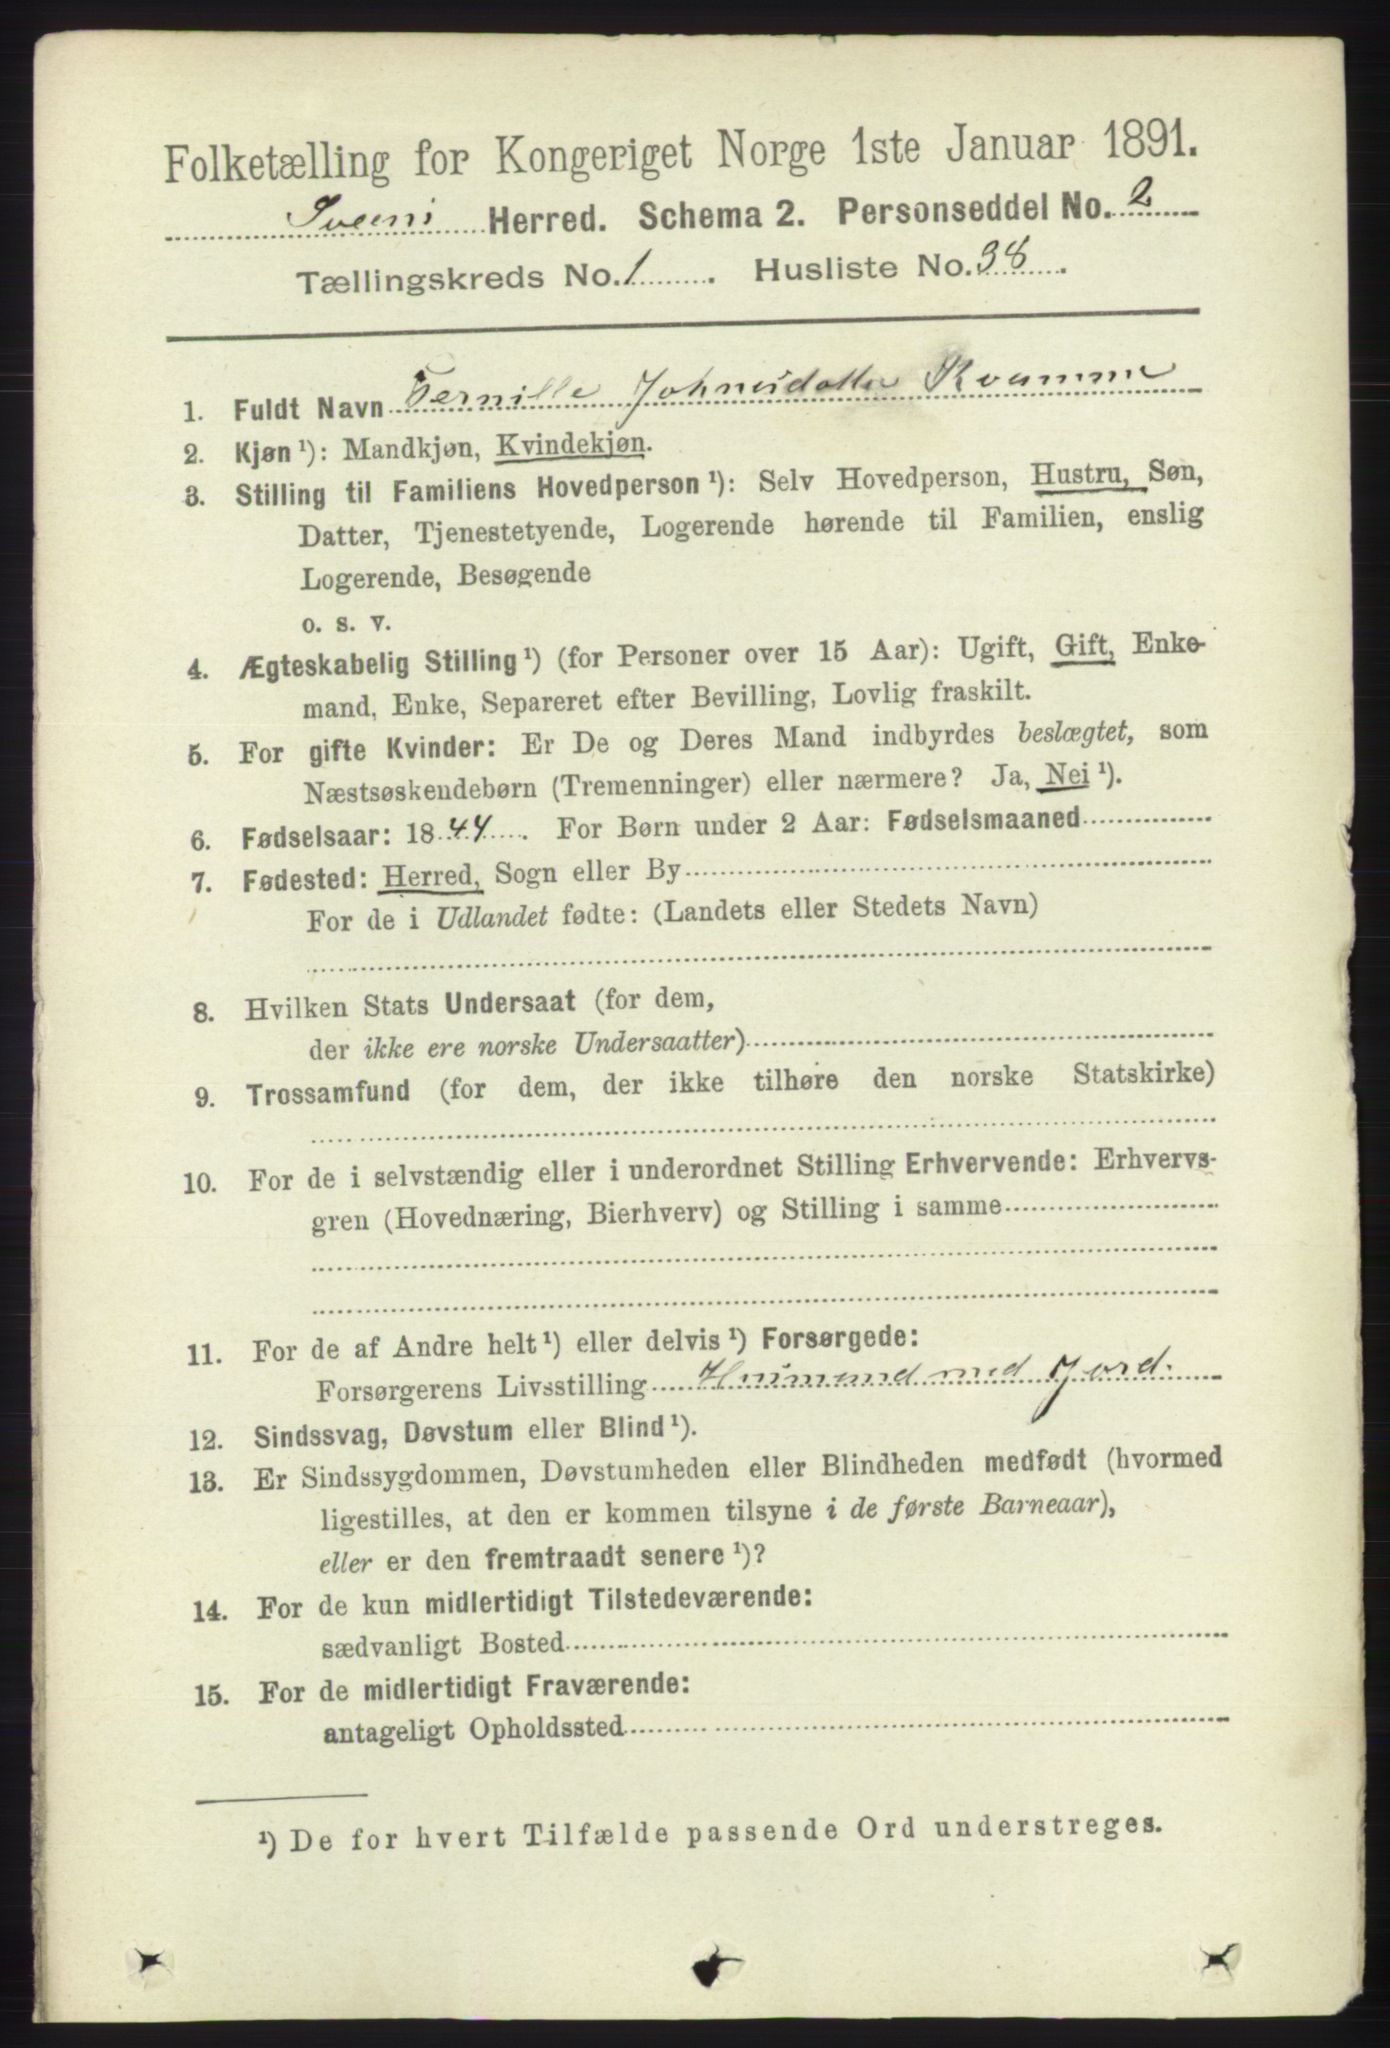 Folketælling for Kongeriget Norge 1ste Januar 1891.
Sveen Herred. Schema 2. Personseddel No. 2
Tællingskreds No. 1. Husliste No. 38.
1. Fuldt Navn Pernille Johnsdatter Kvamme
2. Kjøn ¹): Mandkjøn, Kvindekjøn.
3. Stilling til Familiens Hovedperson ¹): Selv Hovedperson, Hustru, Søn,
Datter, Tjenestetyende, Logerende hørende til Familien, enslig
Logerende, Besøgende
o. s. v.
4. Ægteskabelig Stilling ¹) (for Personer over 15 Aar): Ugift, Gift, Enke-
mand, Enke, Separeret efter Bevilling, Lovlig fraskilt.
5. For gifte Kvinder: Er De og Deres Mand indbyrdes beslægtet, som
Næstsøskendebørn (Tremenninger) eller nærmere? Ja, Nei ¹).
6. Fødselsaar: 1844. For Børn under 2 Aar: Fødselsmaaned
7. Fødested: Herred, Sogn eller By
For de i Udlandet fødte: (Landets eller Stedets Navn)
8. Hvilken Stats Undersaat (for dem,
der ikke ere norske Undersaatter)
9. Trossamfund (for dem, der ikke tilhøre den norske Statskirke)
10. For de i selvstændig eller i underordnet Stilling Erhvervende: Erhvervs-
gren (Hovednæring, Bierhverv) og Stilling i samme
11. For de af Andre helt ¹) eller delvis ¹) Forsørgede:
Forsørgerens Livsstilling Husmand med Jord.
12. Sindssvag, Døvstum eller Blind ¹).
13. Er Sindssygdommen, Døvstumheden eller Blindheden medfødt (hvormed
ligestilles, at den er kommen tilsyne i de første Barneaar),
eller er den fremtraadt senere ¹)?
14. For de kun midlertidigt Tilstedeværende:
sædvanligt Bosted
15. For de midlertidigt Fraværende:
antageligt Opholdssted
¹) De for hvert Tilfælde passende Ord understreges.